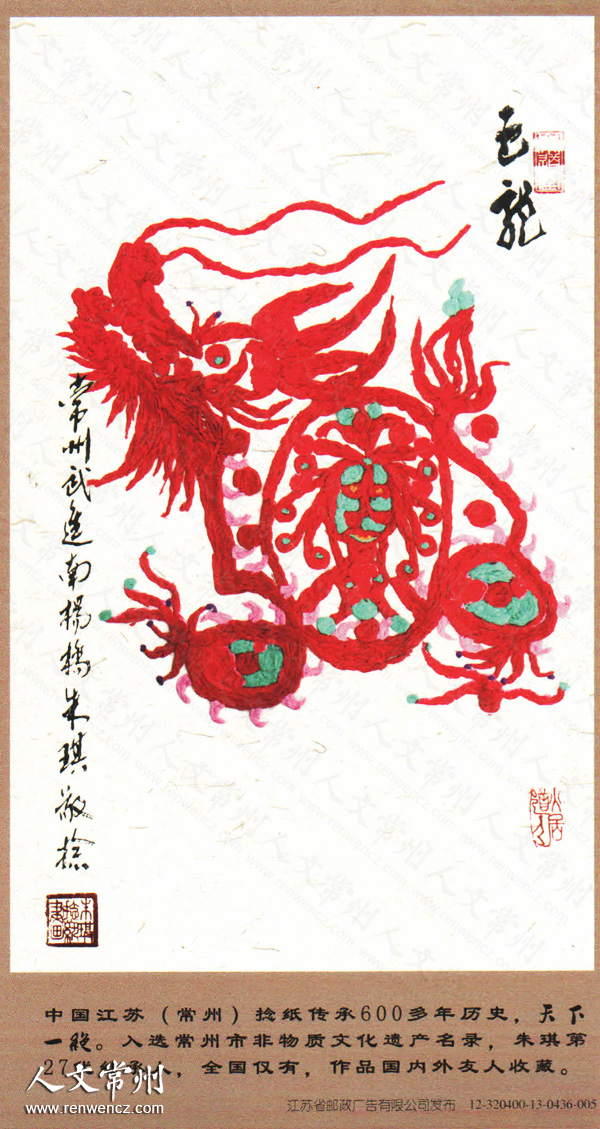 龍
常州武進南楊橋朱琪敬捻
中国江苏（常州）捻纸传承600多年历史，天下
一绝。入选常州市非物质文化遗产名录，朱琪第
27代传承人，全国仅有，作品国内外友人收藏。
人文常州
www.renwencz.com
江苏省邮政广告有限公司发布 12-320400-13-0436-005